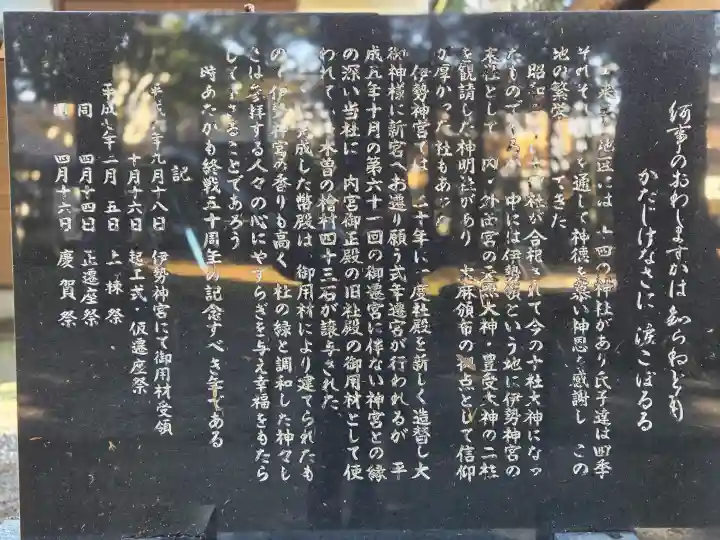 何事のおわしますかは知らねども
かたじけなさに 涙こぼるる
地区には 十四の神社があり氏子達は四季
それぞれ を通して神徳を慕い神恩を感謝し この
地の繁栄 てきた
昭和 社が合祀されて今の十社大神になっ
たもので 中には伊勢領という地に伊勢神宮の
末社として 内・外両宮の天照大神・豊受大神の二柱
を観請した神明社があり 大麻頒布の拠点として信仰
の厚かった社もあ
伊勢神宮では 二十年に一度社殿を新しく造替し大
御神様に新宮へお遷り願う式年遷宮が行われるが 平
成五年十月の第六十一回の御遷宮に伴ない神宮との縁
の深い当社に 内宮御正殿の旧社殿の御用材として使
われて 木曽の桧材四十三石が譲与された
成した幣殿は 御用材により建てられたも
ので 伊勢神宮の香りも高く 杜の緑と調和した神々し
さは参拝する人々の心にやすらぎを与え幸福をもたら
してくることであろう
時あたかも終戦五十周年の記念すべき年である
記
平成 年九月十八日 伊勢神宮にて御用材受領
十月十六日 起工式・仮遷座祭
平成 年二月 五日 上棟祭
同 四月十四日 正遷座祭
四月十六日 慶賀祭